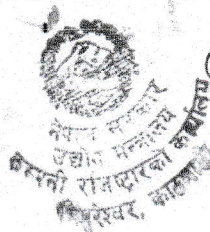 नेपाल सरकार
उद्योग मन्त्रालय
कम्पनी रजिष्ट्रारको कार्यालय
त्रिपुरेश्वर, काठमाडौं